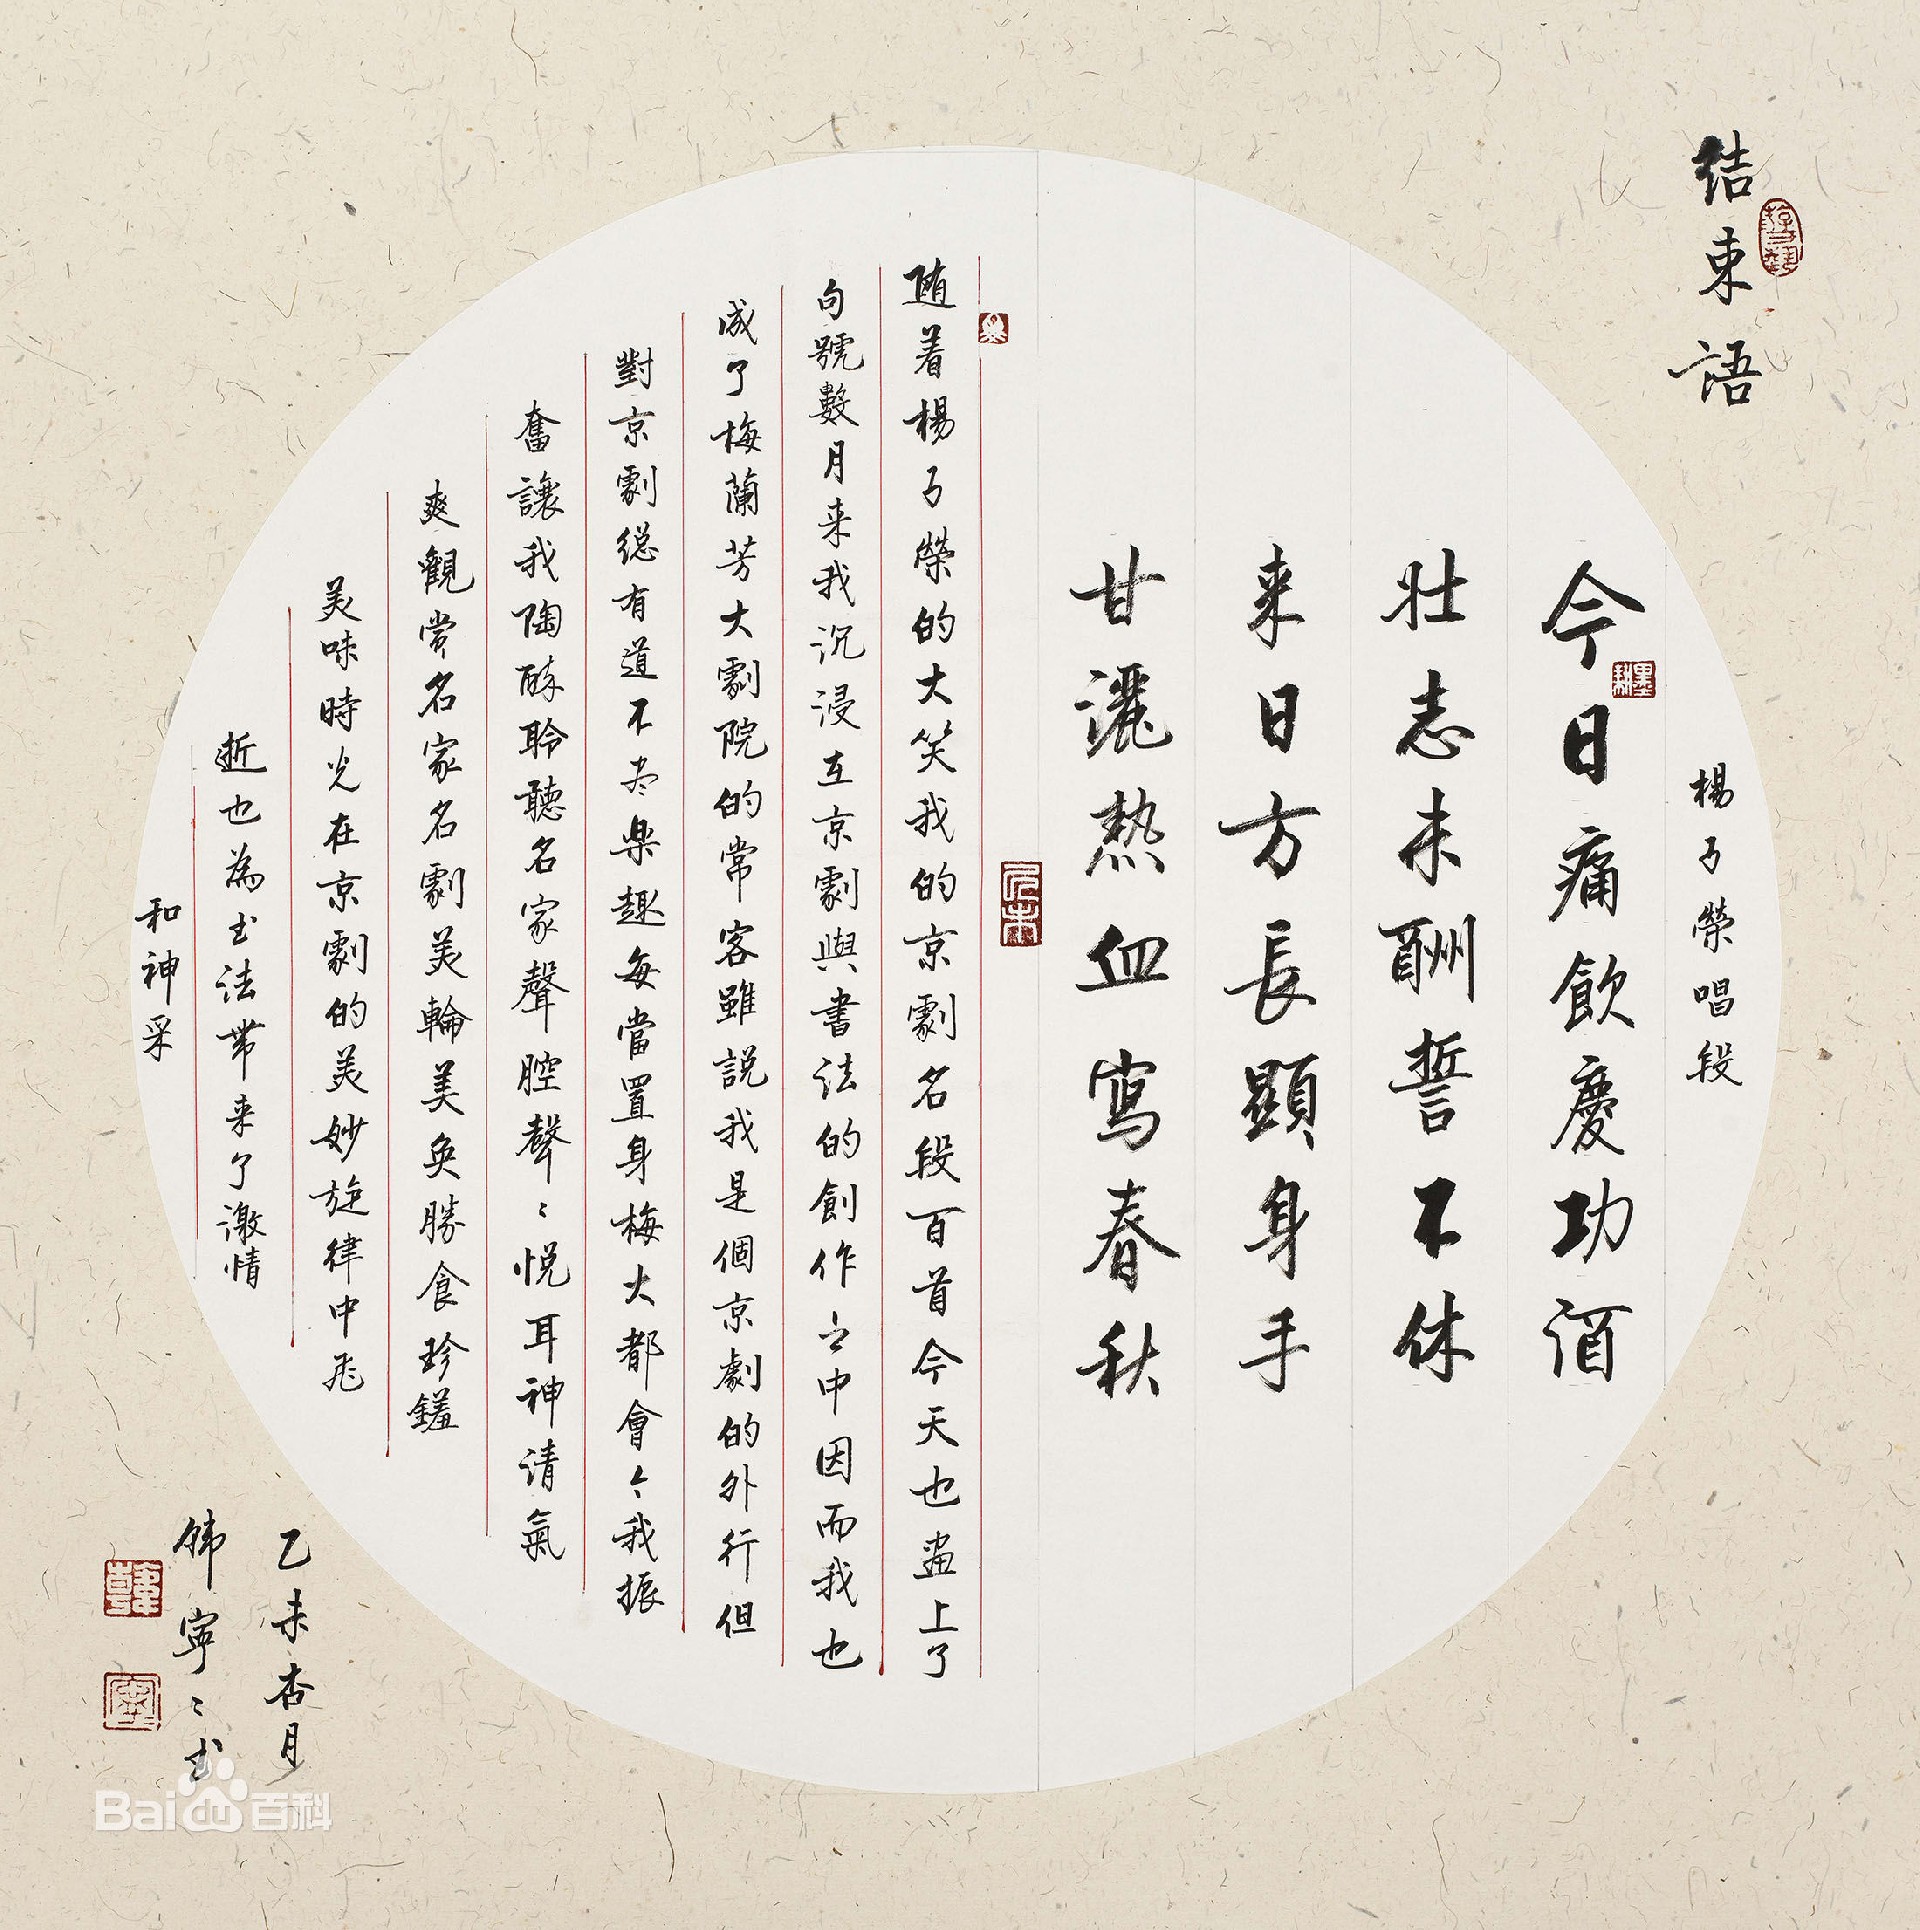 結束語
楊子榮唱段
今日痛飲慶功酒
壯志未酬誓不休
来日方長顯身手
甘灑热血寫春秋
随着楊子榮的大笑我的京劇名段百首今天也畫上了
句號數月来我沉浸在京劇與書法的創作之中因而我也
成了梅蘭芳大劇院的常客雖説我是個京劇的外行但
對京劇總有道不尽樂趣每當置身梅大都會令我振
奮讓我陶醉聆聽名家聲腔聲〻悦耳神清氣
爽觀赏名家名劇美輪美奂勝食珍饈
美味時光在京劇的美妙旋律中飛
逝也為书法带来了激情
和神采
乙未杏月
韩寧〻书
墨耕
乙未
Baidu百科